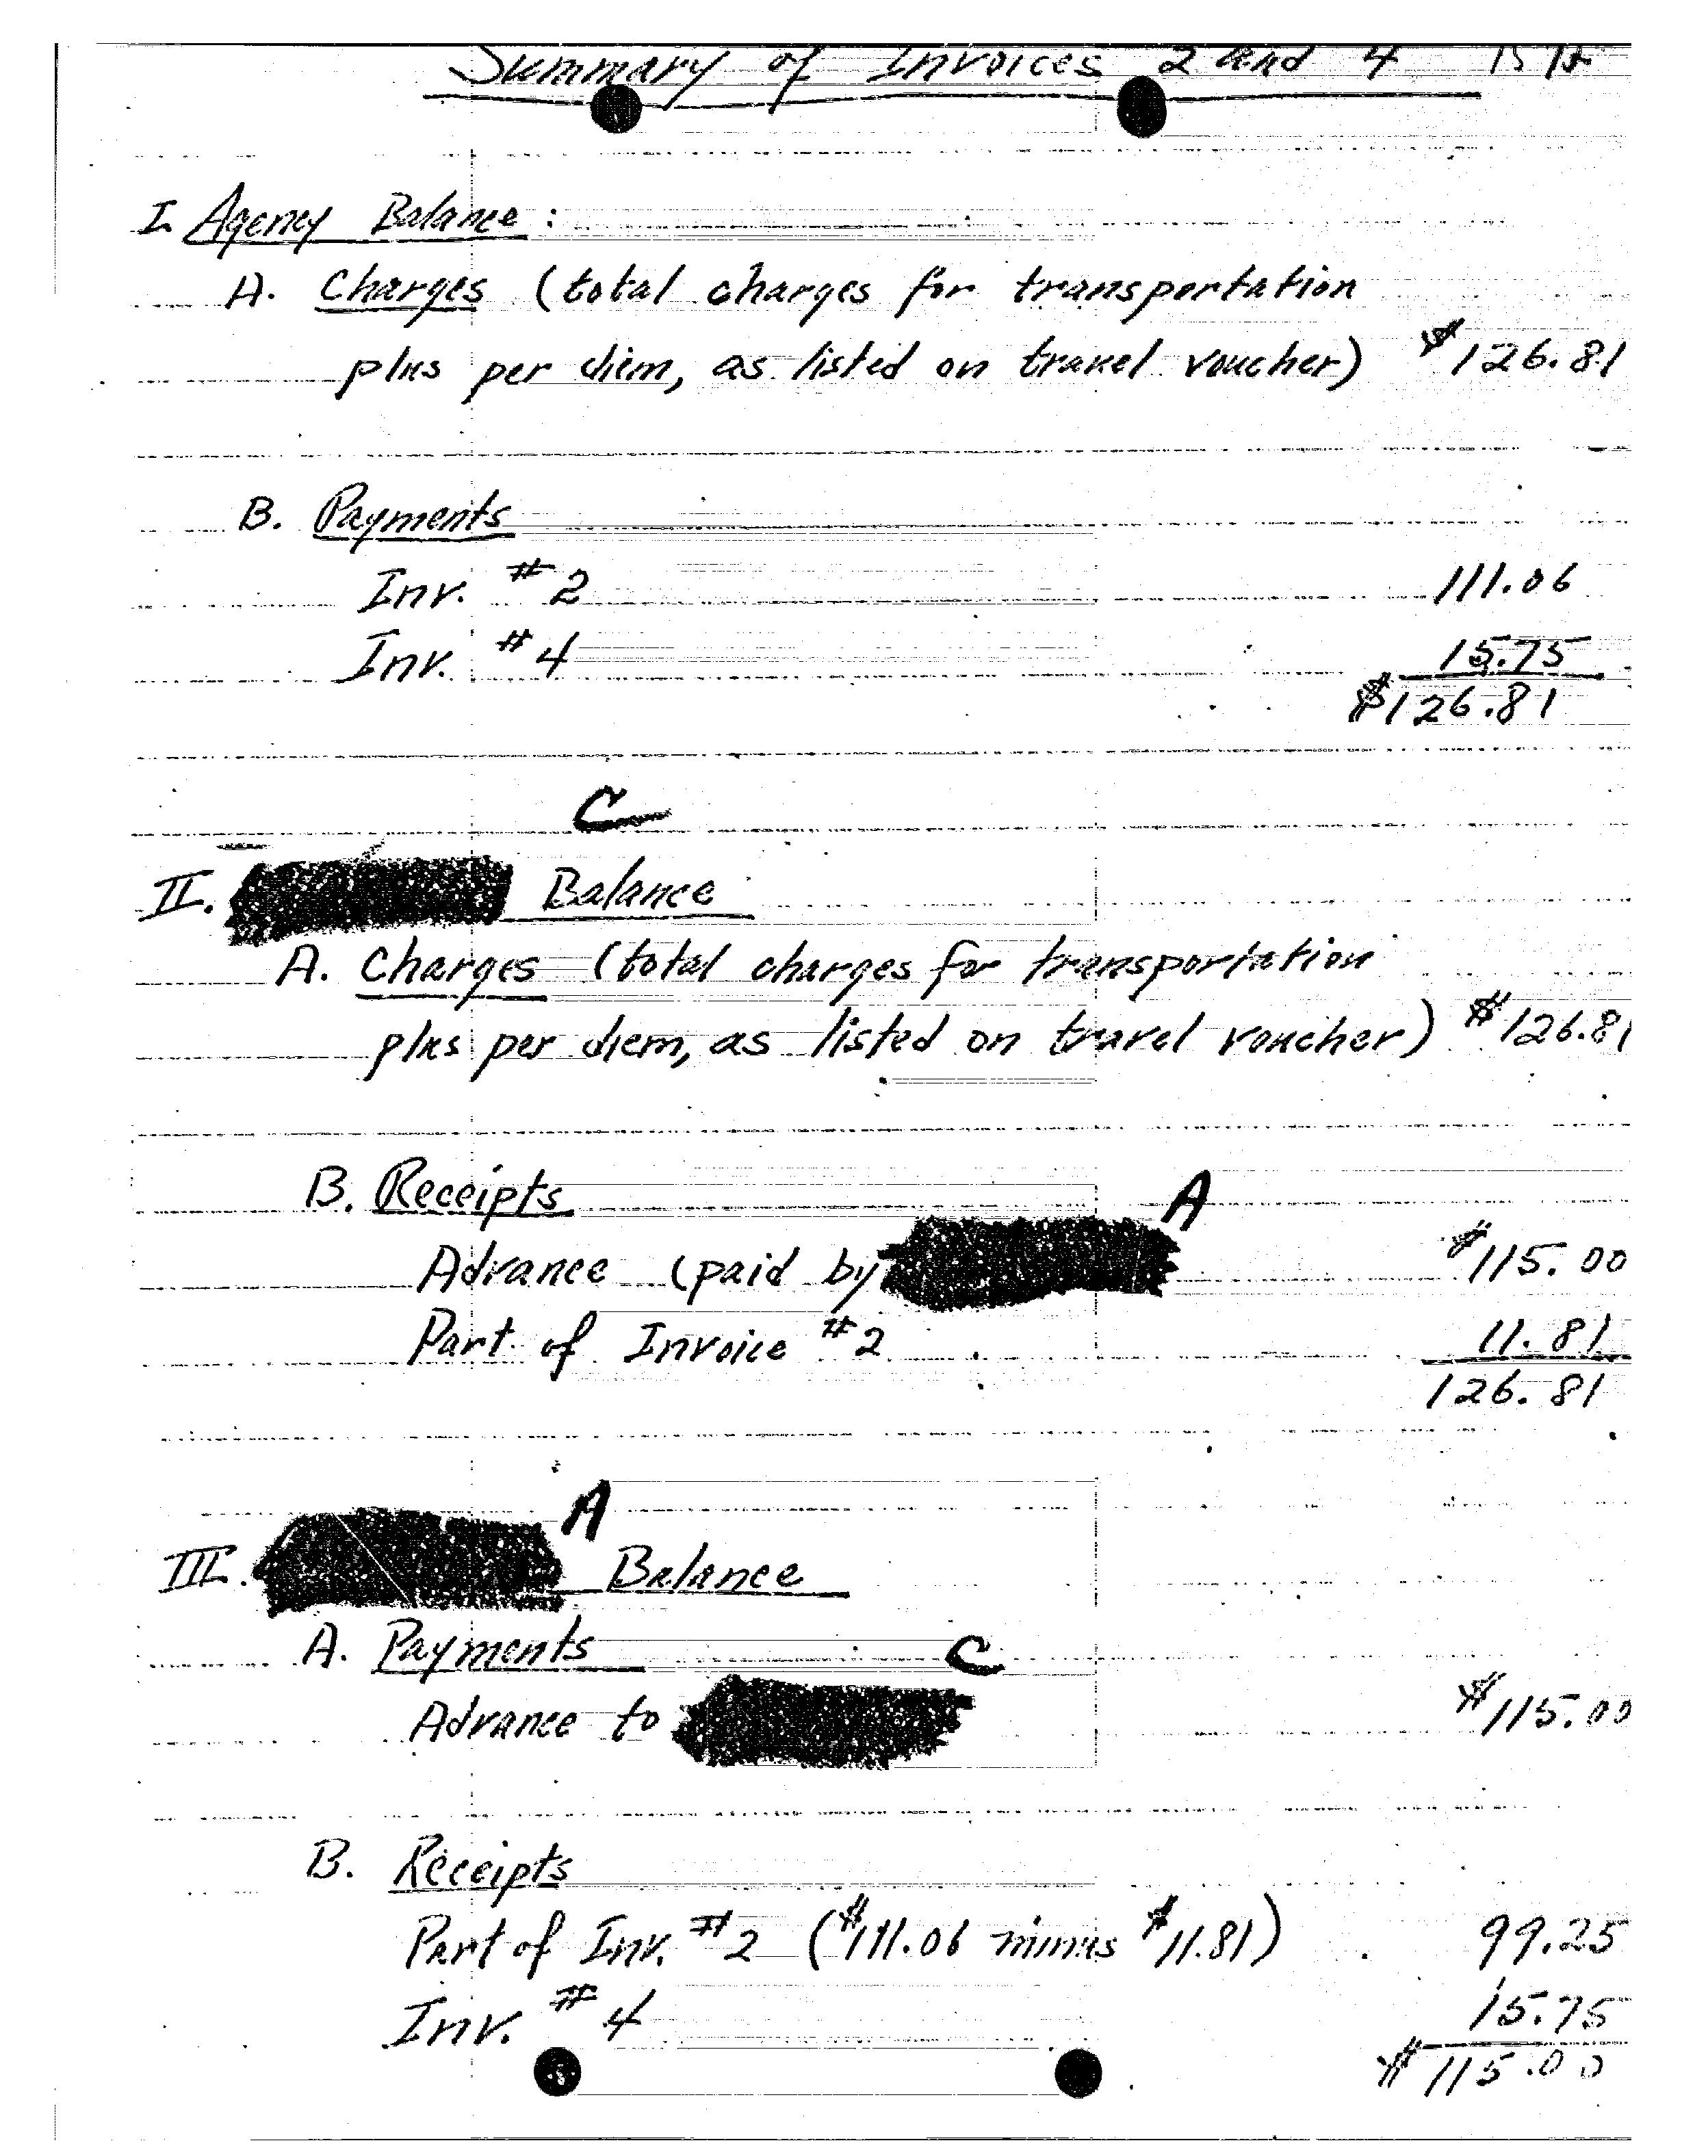 Summary of Invoices 2 and 4
I. Agency Balance :
A. Charges (total charges for transportation
plus per diem, as listed on travel voucher) $126.81
B. Payments
Inv. #2 111.06
Inv. #4 15.75
$126.81
C
II. Balance
A. Charges (total charges for transportation
plus per diem, as listed on travel voucher) $126.81
B. Receipts A
Advance (paid by $115.00
Part of Invoice #2 11.81
126.81
A
III. Balance
A. Payments C
Advance to $115.00
B. Receipts
Part of Inv. #2 ($111.06 minus $11.81) 99.25
Inv. #4 15.75
$115.00